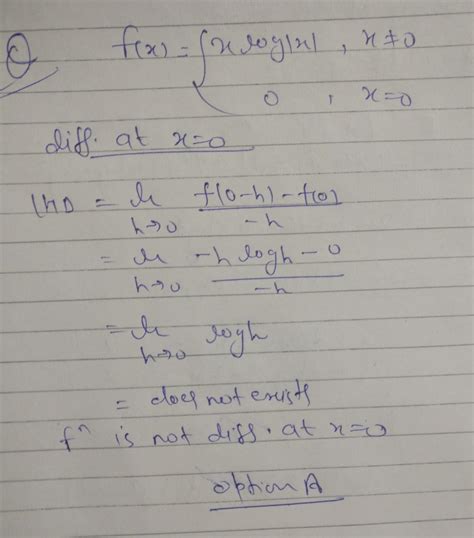 Q f(x) = { x log|x| , x ≠ 0
0 , x = 0
diff. at x=0
LHD = lt h→0 f(0-h) - f(0) / -h
= lt h→0 -h logh - 0 / -h
= lt h→0 logh
= does not exists
fⁿ is not diff. at x=0
option A